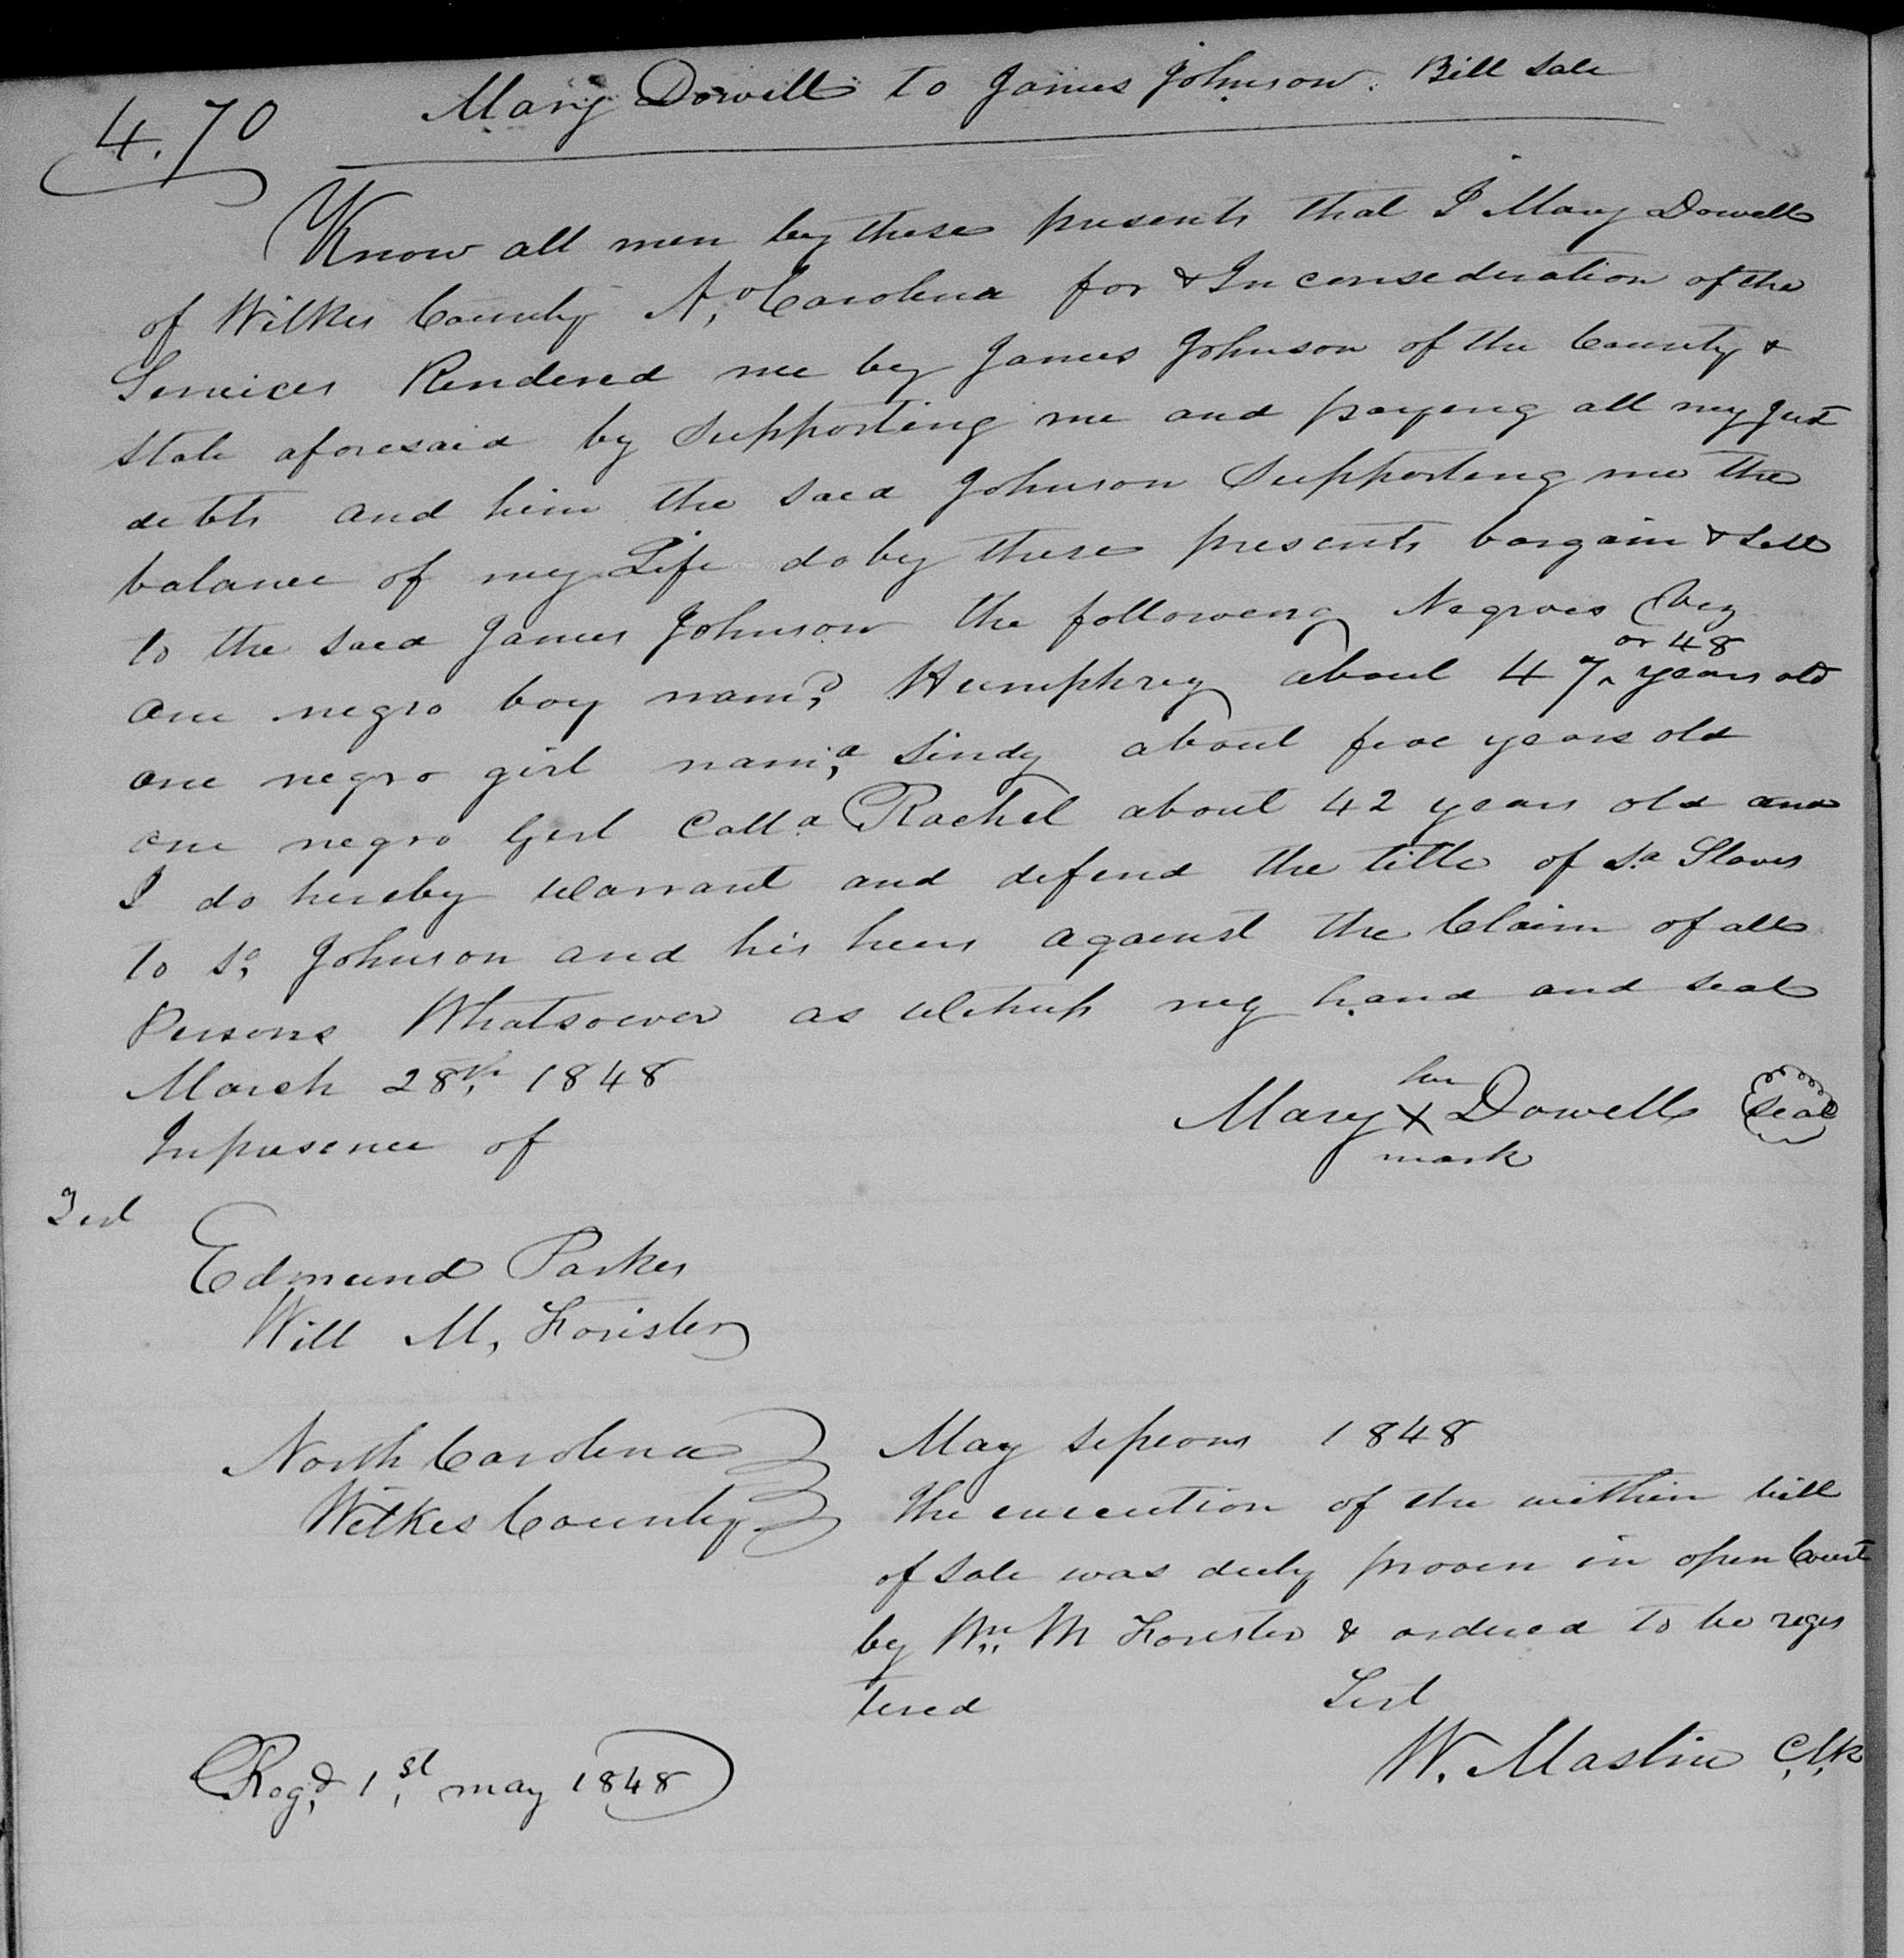 4.70 Mary Dowell to James Johnson. Bill Sale
Know all men by these presents that I Mary Dowell
of Wilkes County No. Carolina for & In consederation of the
Services Rendered me by James Johnson of the County &
State aforesaid by Supporting me and paying all my just
debts and him the said Johnson Supporting me the
balance of my Life do by these presents bargain & Sell
to the said James Johnson the following Negroes (viz
or 48
one negro boy namd. Humphrey about 47^ years old
one negro girl namd. Sindy about five years old
one negro Girl Calld Rachel about 42 years old and
I do hereby Warrant and defend the title of sd Slaves
to sd. Johnson and his heirs against the Claim of all
Persons Whatsoever as Witness my hand and seal
March 28th, 1848
her
Mary X Dowell Seal
mark
In presence of
Test
Edmund Parker
Will M, Forister
North Carolina
Wilkes County
May Session 1848
The execution of the within bill
of Sale was duly proven in open Court
by Wm. M Forester & ordered to be regis
tered Test
W. Mastin Clk
Regd. 1st, may 1848